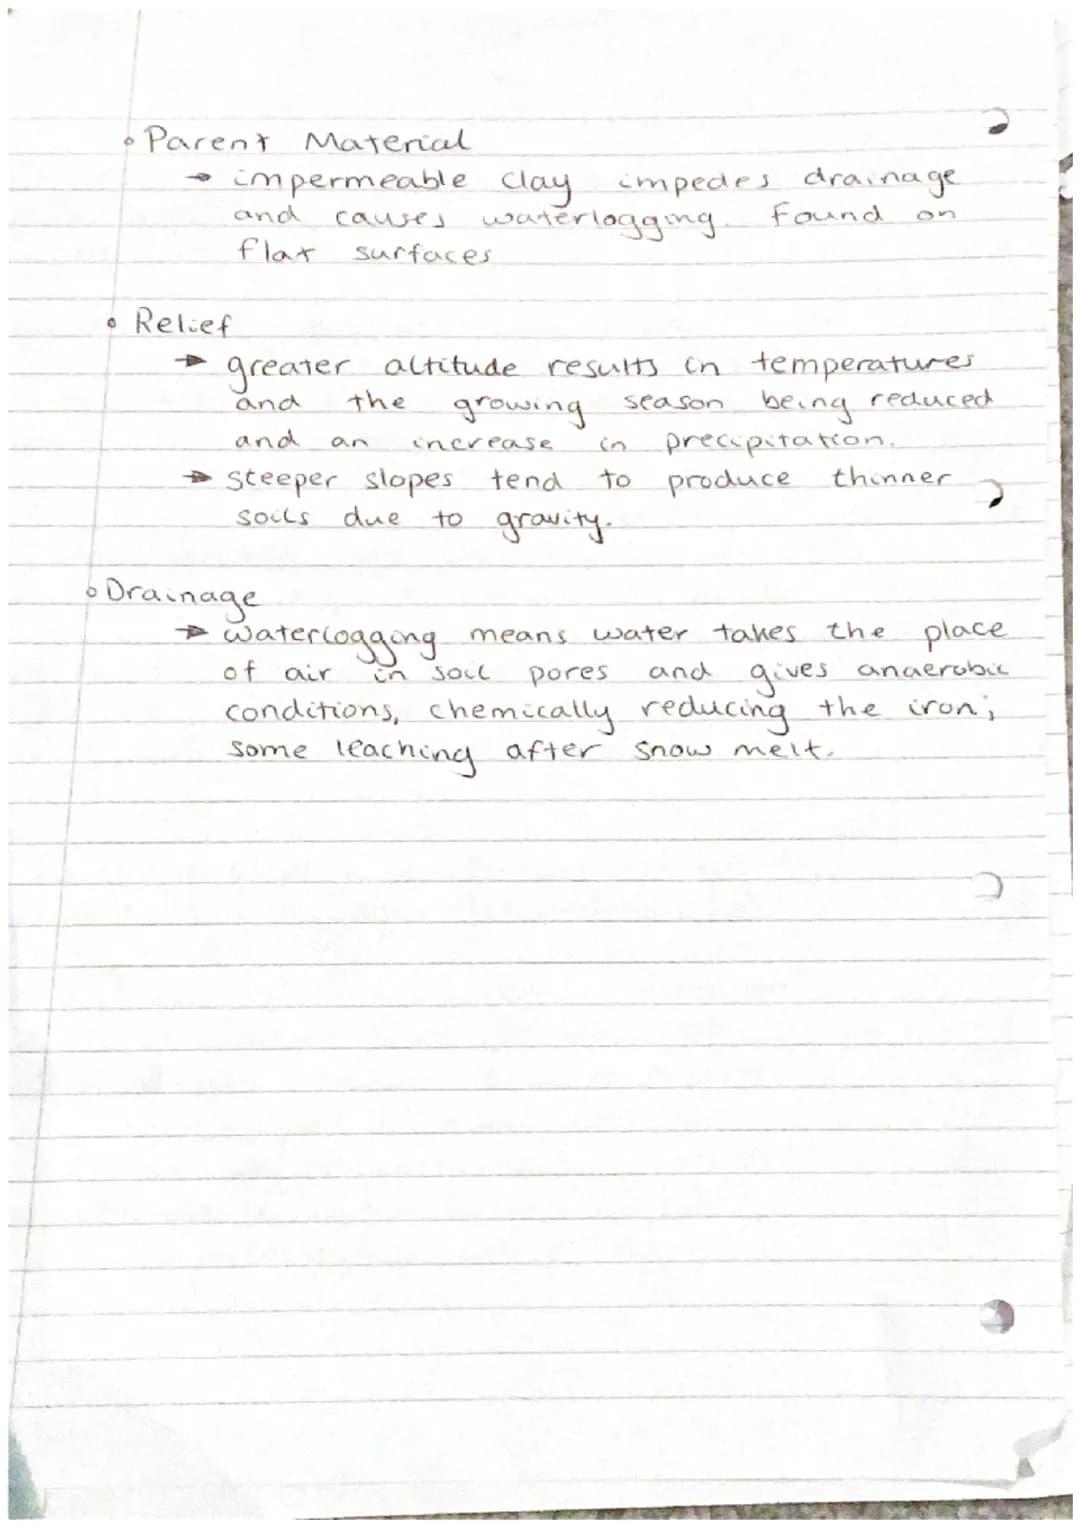 • Parent Material
→ impermeable clay impedes drainage
and causes waterlogging. Found on
flat surfaces
• Relief
→ greater altitude results in temperatures
and the growing season being reduced
and an increase in precipitation.
→ steeper slopes tend to produce thinner
soils due to gravity.
• Drainage
→ waterlogging means water takes the place
of air in soil pores and gives anaerobic
conditions, chemically reducing the iron;
some leaching after snow melt.